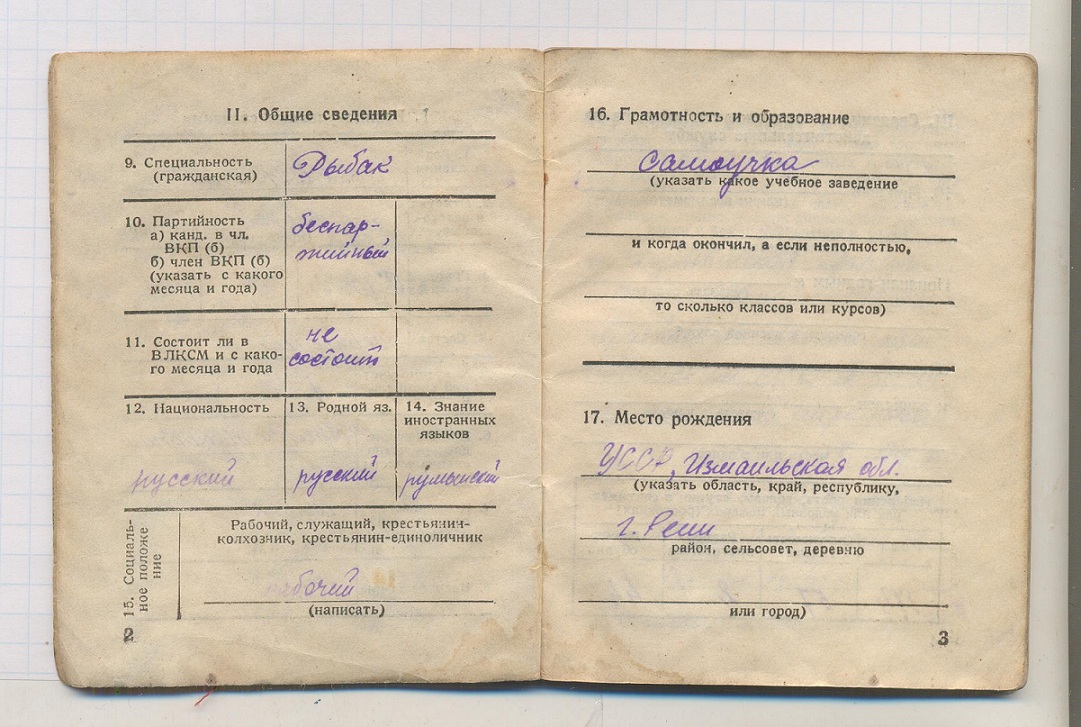 II. Общие сведения
9. Специальность
(гражданская)
Рыбак
10. Партийность
а) канд. в чл.
ВКП (б)
б) член ВКП (б)
(указать с какого
месяца и года)
беспар-
тийный
11. Состоит ли в
ВЛКСМ и с како-
го месяца и года
не
состоит
12. Национальность
русский
13. Родной яз.
русский
14. Знание
иностранных
языков
румынский
15. Социаль-
ное положе
ние
Рабочий, служащий, крестьянин-
колхозник, крестьянин-единоличник
рабочий
(написать)
2
16. Грамотность и образование
самоучка
(указать какое учебное заведение
и когда окончил, а если неполностью,
то сколько классов или курсов)
17. Место рождения
УССР, Измаильская обл.
(указать область, край, республику,
г. Рени
район, сельсовет, деревню
или город)
3